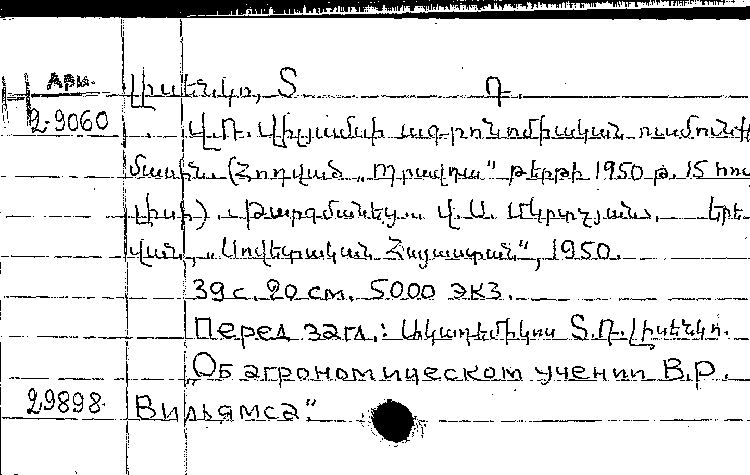 Арм. Լիսենկո, Տ. Դ.
2-9060 Վ. Ռ. Վիլյամսի ագրոնոմիական ուսմունքի
մասին. (Հոդված „Պրավդա“ թերթի 1950 թ. 15 հու
լիսի). Թարգմանեց.. Վ. Ա. Մկրտչյանս. Երե
վան, „Սովետական Հայաստան“, 1950.
39 с. 20 см. 5000 экз.
Перед загл.: Ակադեմիկոս Տ. Դ. Լիսենկո.
„Об агрономическом учении В. Р.
29898 Вильямса“.